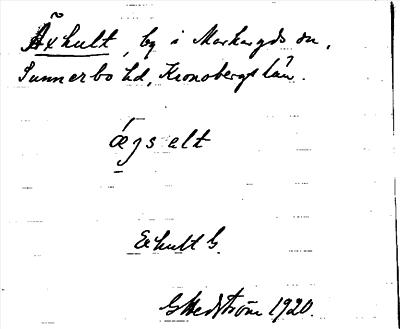 Äxhult, by i Markaryds sn,
Sunnerbo hd, Kronobergs län.
ǽgsalt
Exhult G.
G Hedström 1920.